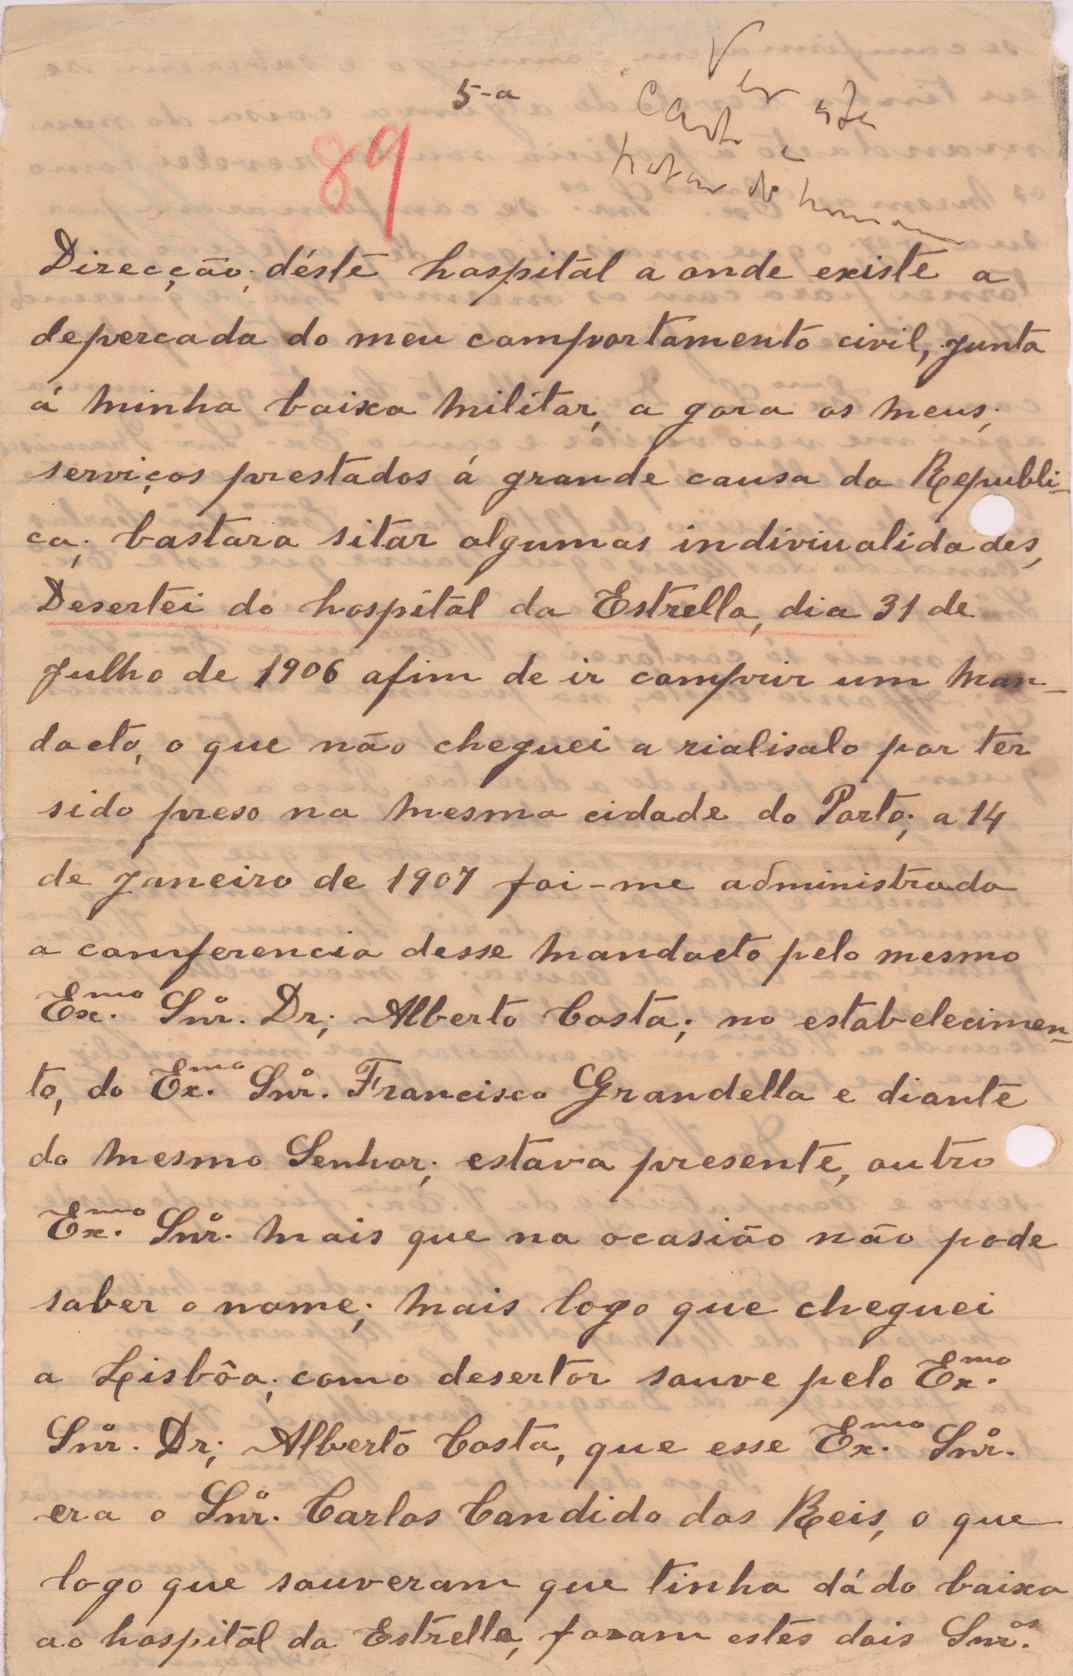 5-a
Ver este
89
Direcção; déste hospital a onde existe a
depercada do meu comportamento civil, junta
á minha baixa militar, a gora os meus;
serviços prestados á grande causa da Republi-
ca; bastara sitar algumas indiviualidades,
Desertei do hospital da Estrella, dia 31 de
Julho de 1906 afim de ir comprir um man-
dacto, o que não cheguei a rialisalo por ter
sido preso na mesma cidade do Porto; a 14
de Janeiro de 1907 foi-me administrada
a comferencia desse mandacto pelo mesmo
Exmo. Snr. Dr; Alberto Costa; no estabelecimen-
to, do Exmo. Snr. Francisco Grandella e diante
do mesmo Senhor; estava presente, outro
Exmo. Snr. mais que na ocasião não pode
saber o nome; mais logo que cheguei
a Lisbôa; como desertor souve pelo Exmo.
Snr. Dr; Alberto Costa, que esse Exmo. Snr.
era o Snr. Carlos Candido dos Reis, o que
logo que souveram que tinha dádo baixa
ao hospital da Estrella, foram estes dois Snros.